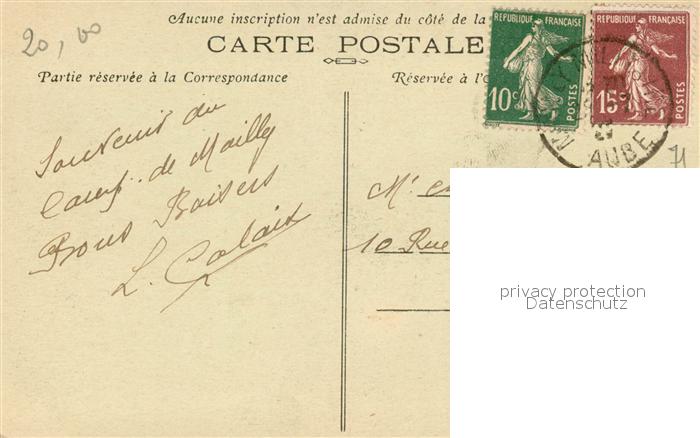 20,00
Aucune inscription n'est admise du côté de la
CARTE POSTALE
Partie réservée à la Correspondance
Réservée à l'
REPUBLIQUE FRANÇAISE
10c
POSTES
REPUBLIQUE FRANÇAISE
15c
POSTES
AUBE
71
Souvenir du
Camp de Mailly
Bons Baisers
L. Calais
Mr
10 Rue
privacy protection
Datenschutz